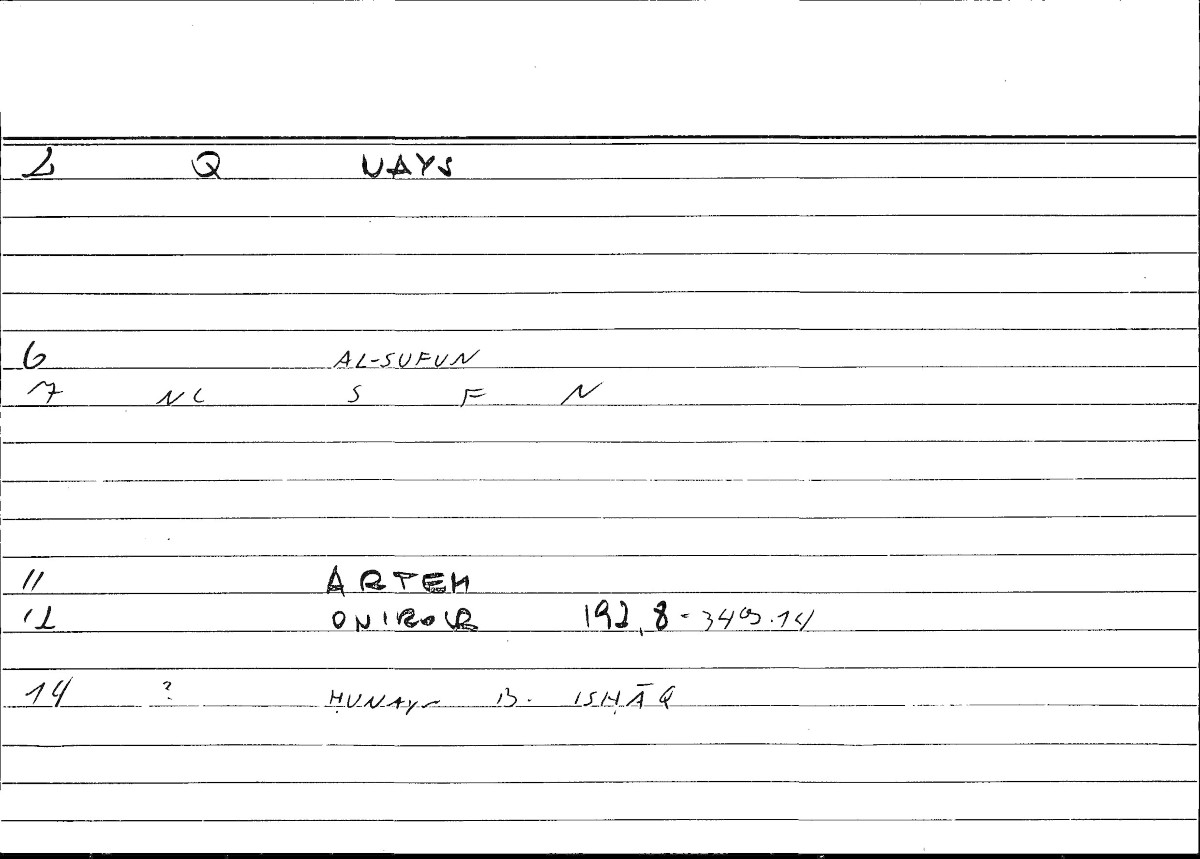 2 Q NAYS
6 AL-SUFUN
7 NC S F N
11 ARTEM
12 ONIROCR 192,8-
14 ? ḤUNAYN B. ISḤĀQ